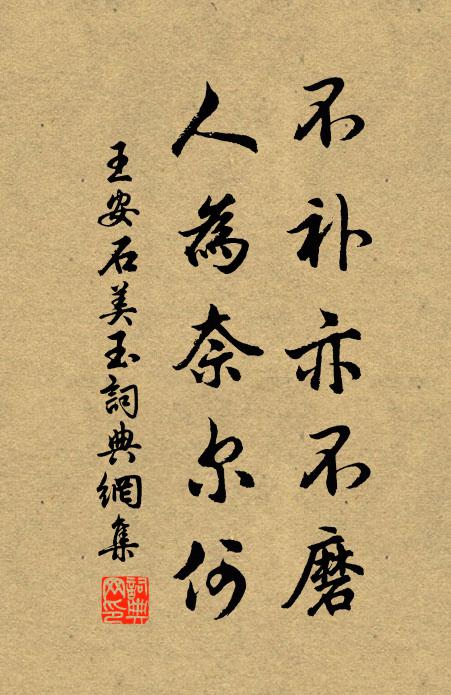 不补亦不磨
人為奈尔何
王安石美玉詞典網集
詞典
网印